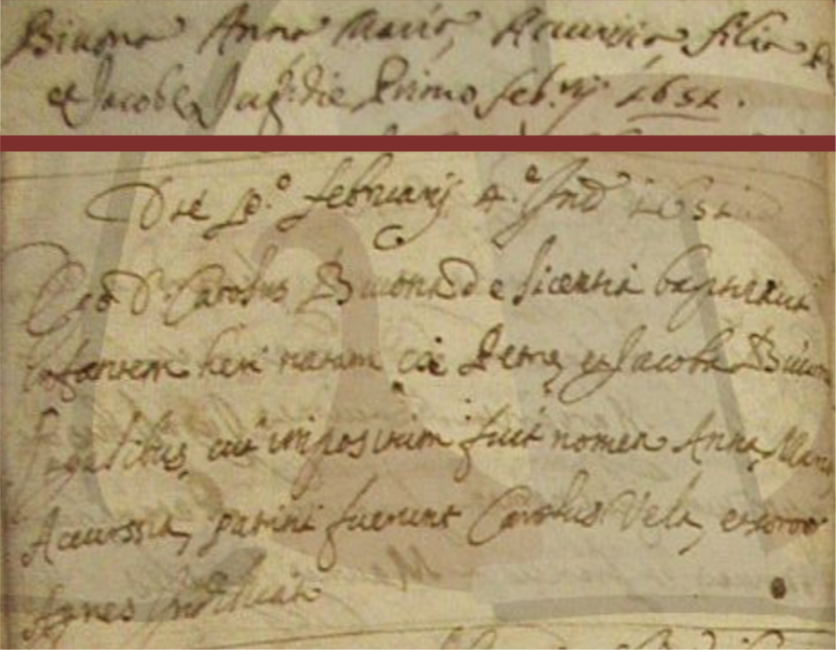 Bivona Anna Maria, Accursia filia
et Jacobe Jug: die Primo feb.rij 1651.
Die p.o februarij 4.e Ind 1651
Ego D. Carolus Bivona de licentia baptizavi
infantem heri natam ex Petro et Jacoba Bivona
jugalibus, cui impositum fuit nomen Anna, Maria
Accurssia, patrini fuerunt Carolus Vela, et soror
Agnes